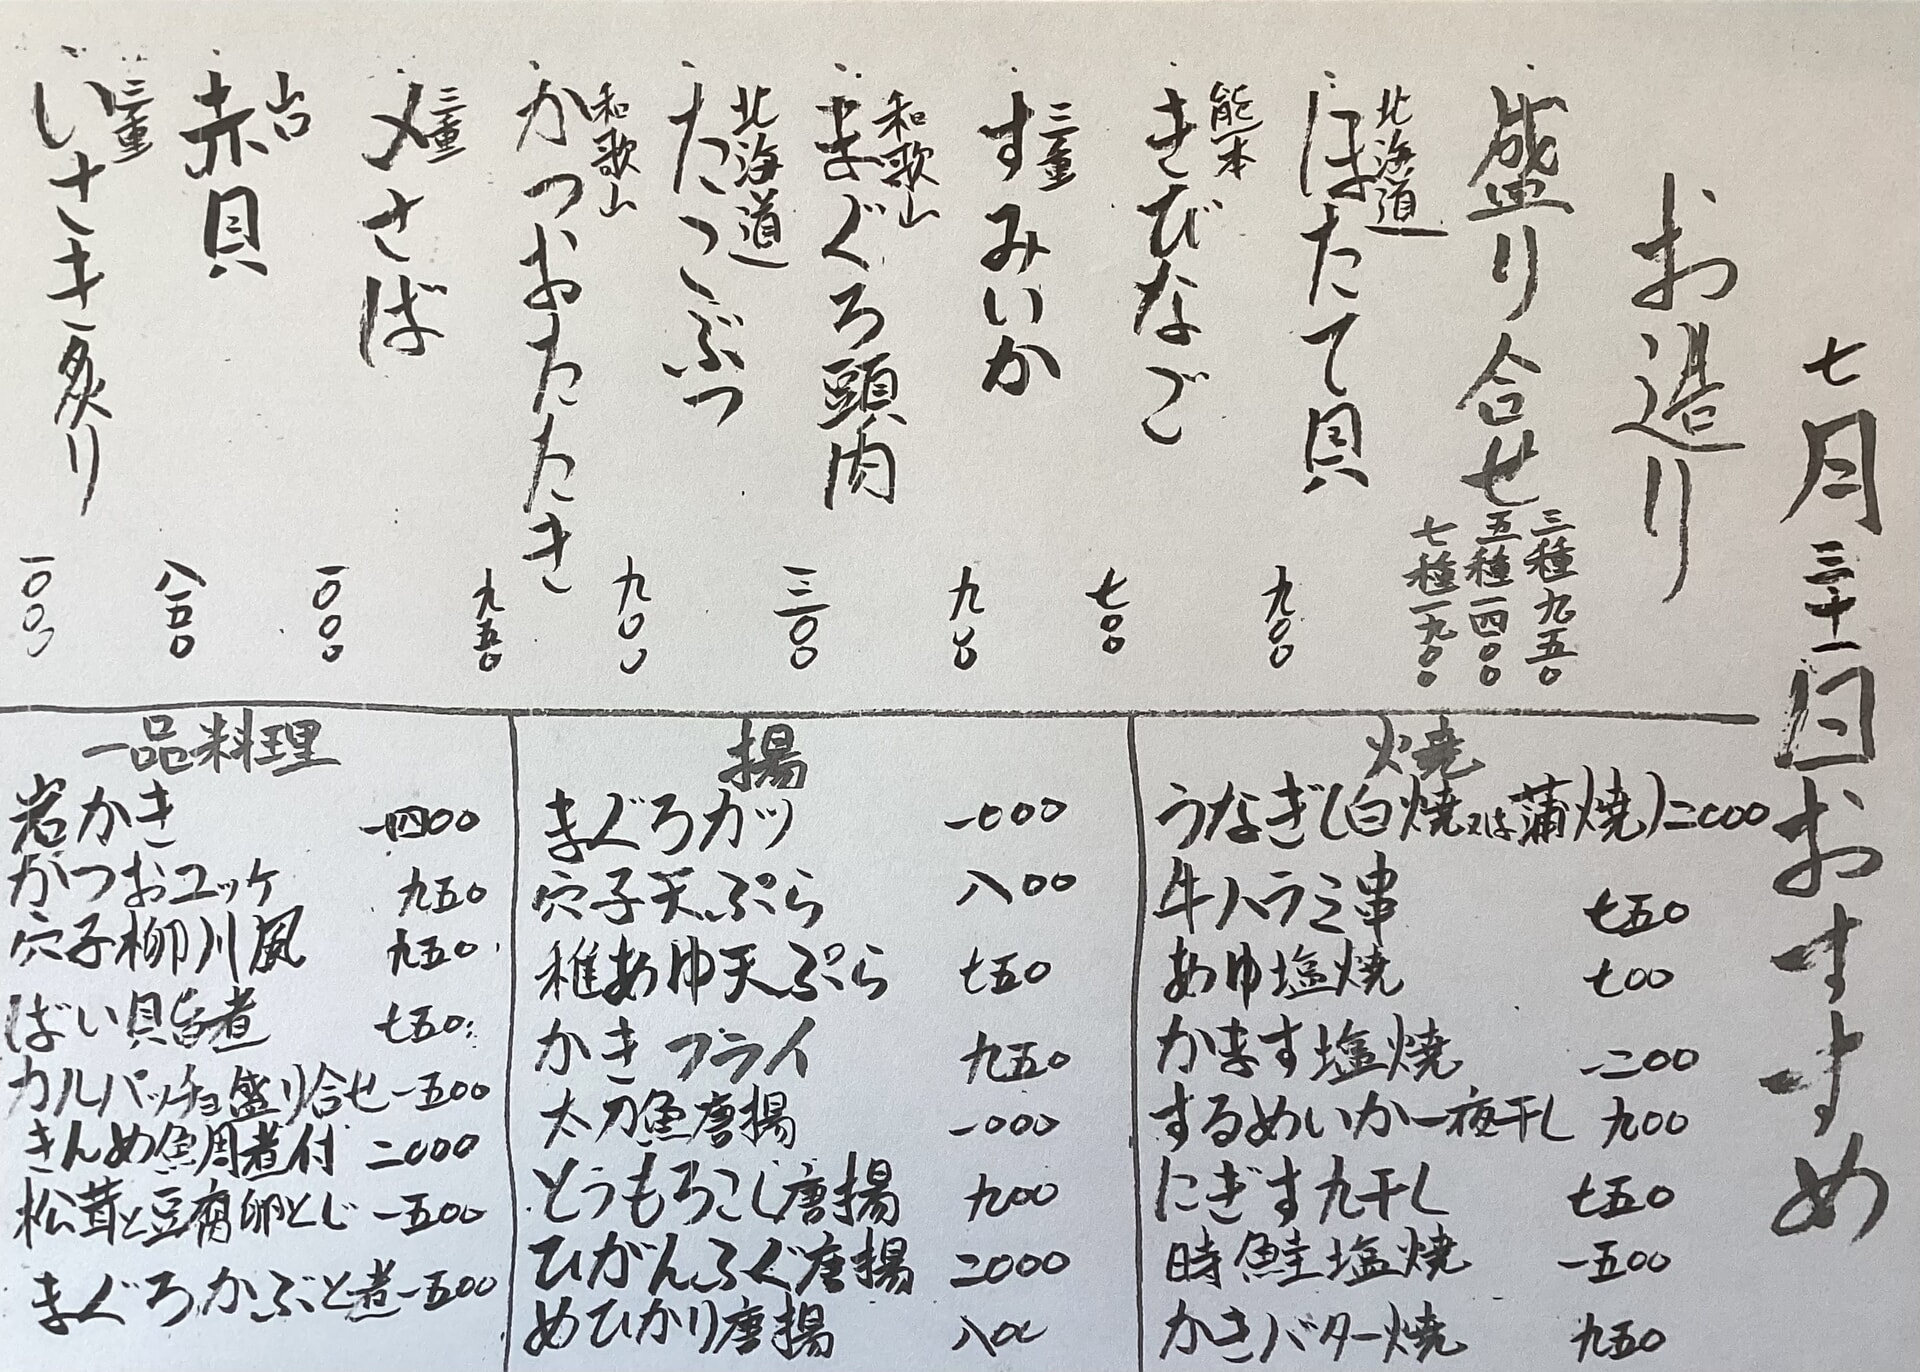 七月三十一日おすすめ
お造り
盛り合せ
三種 九五〇
五種 一四〇〇
七種 一九〇〇
北海道
ほたて貝 九〇〇
熊本
きびなご 七〇〇
三重
すみいか 九〇〇
和歌山
まぐろ頭肉 一三〇〇
北海道
たこぶつ 九〇〇
和歌山
かつおたたき 九五〇
三重
〆さば 一〇〇〇
赤貝 八五〇
三重
いさき炙り 一〇〇〇
焼
うなぎ(白焼又は蒲焼) 二〇〇〇
牛ハラミ串 七五〇
あゆ塩焼 七〇〇
かます塩焼 一二〇〇
するめいか一夜干し 九〇〇
にぎす丸干し 七五〇
時鮭塩焼 一五〇〇
かきバター焼 九五〇
揚
まぐろカツ 一〇〇〇
穴子天ぷら 八〇〇
稚あゆ天ぷら 七五〇
かきフライ 九五〇
太刀魚唐揚 一〇〇〇
とうもろこし唐揚 九〇〇
ひがんふぐ唐揚 二〇〇〇
めひかり唐揚 八〇〇
一品料理
岩かき 一四〇〇
かつおユッケ 九五〇
穴子柳川風 九五〇
ばい貝旨煮 七五〇
カルパッチョ盛り合せ 一五〇〇
きんめ鯛煮付 二〇〇〇
松茸と豆腐卵とじ 一五〇〇
まぐろかぶと煮 一五〇〇